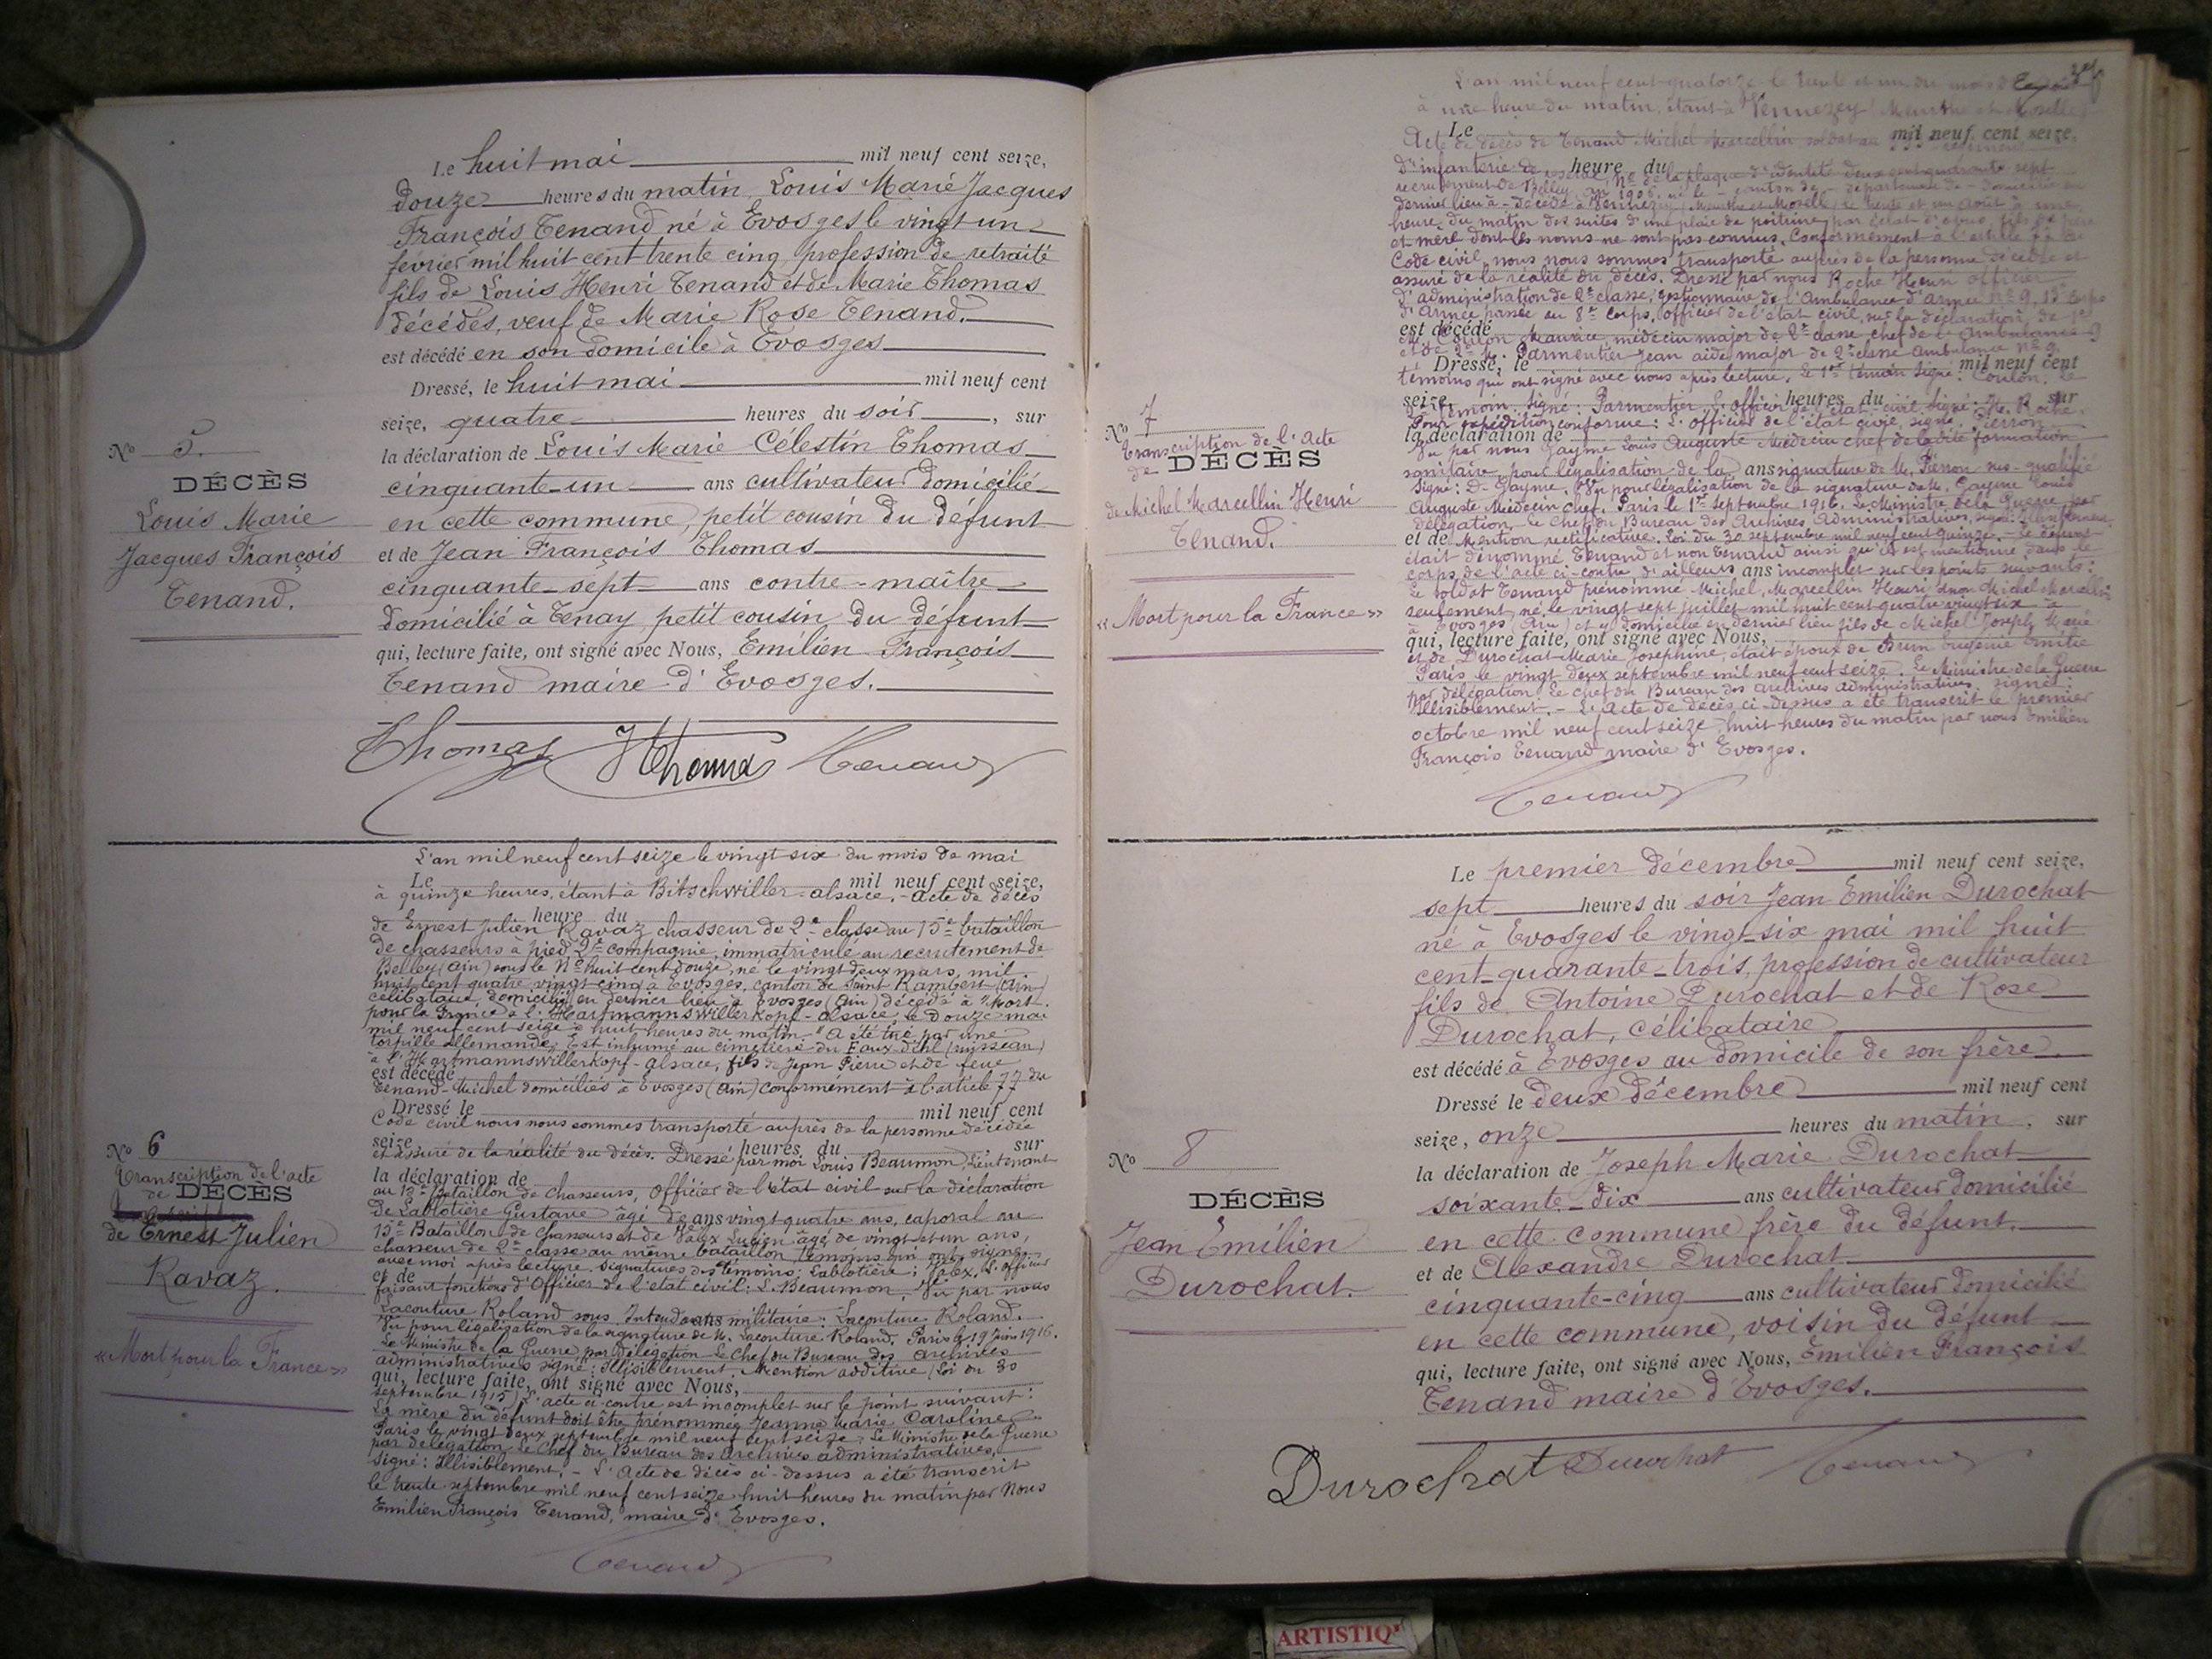 Le huit mai mil neuf cent seize,
douze heures du matin Louis Marie Jacques
François Tenand né à Evosges le vingt un
fevrier mil huit cent trente cinq profession de retraité
fils de Louis Henri Tenand et de Marie Thomas
décédés, veuf de Marie Rose Tenand.
est décédé en son domicile à Evosges
Dressé, le huit mai mil neuf cent
seize, quatre heures du soir, sur
la déclaration de Louis Marie Célestin Thomas
cinquante-un ans cultivateur domicilié
en cette commune, petit cousin du défunt
et de Jean François Thomas
cinquante-sept ans contre-maître
domicilié à Tenay petit cousin du défunt
qui, lecture faite, ont signé avec Nous, Emilien François
Tenand maire d'Evosges.
Thomas JThomas Tenand
No 5.
DÉCÈS
Louis Marie
Jacques François
Tenand.
L'an mil neuf cent seize le vingt six du mois de mai
Le mil neuf cent seize,
à quinze heures, étant à Bitschwiller-alsace.- Acte de décès
heure du
de Ernest Julien Ravaz chasseur de 2e classe au 15e bataillon
de chasseurs à pied 2e compagnie, immatriculé au recrutement de
Belley (ain) sous le No huit cent douze, né le vingt deux mars, mil
huit cent quatre vingt cinq à Evosges, canton de Saint Rambert (ain)
célibataire, domicilié en dernier lieu à Evosges (ain) décédé à Mort
pour la France à l'Hartmannswillerkopf-alsace, le douze mai
mil neuf cent seize à huit heures du matin. A été tué par une
torpille allemande. Est inhumé au cimetière du (ruisseau)
à l'Hartmannswillerkopf-alsace, fils de Jean Pierre et de feue
est décédé
Tenand-Michel domiciliés à Evosges (ain) conformément à l'article 77 du
Dressé le mil neuf cent
Code civil nous nous sommes transporté auprès de la personne décédée
seize, heures du sur
et assuré de la réalité du décès. Dressé par moi Louis Beaumon, lieutenant
la déclaration de
au 15e Bataillon de Chasseurs, Officier de l'état civil sur la déclaration
de Lablotière Gustave âgé de ans vingt quatre ans, caporal au
15e Bataillon de Chasseurs et de Julien âgé de vingt et un ans,
chasseur de 2e classe au même bataillon, témoins qui ont signé
avec moi après lecture. Signatures des témoins: Lablotière; L'officier
et de
faisant fonctions d'Officier de l'état civil: L. Beaumon. Vu par nous
Lacouture Roland sous Intendant ans militaire: Lacouture Roland.
Vu pour légalisation de la signature de M. Lacouture Roland. Paris le 19 Juin 1916.
Le Ministre de la Guerre par délégation Le Chef du Bureau des Archives
administratives signé: Illisiblement. Mention additive (Loi du 30
qui, lecture faite, ont signé avec Nous,
septembre 1915) L'acte ci-contre est incomplet sur le point suivant:
La mère du défunt doit être prénommée Jeanne Marie Caroline
Paris le vingt deux septembre mil neuf cent seize. Le Ministre de la Guerre
par délégation Le Chef du Bureau des Archives administratives,
Signé: Illisiblement. - L'Acte de décès ci-dessus a été transcrit
le trente septembre mil neuf cent seize huit heures du matin par Nous
Emilien François Tenand, maire d'Evosges.
Tenand
No 6
Transcription de l'acte
de DÉCÈS
de Ernest Julien
Ravaz.
«Mort pour la France»
L'an mil neuf cent quatorze le trente et un du mois d'
à une heure du matin, étant à Vennezey Meurthe et Moselle
Le mil neuf cent seize,
Acte de décès de Tenand Michel Marcellin soldat au
heure du
d'infanterie de No de la plaque d'identité deux cent quarante sept
recrutement de Belley, an 1906. né le - canton de - département de -
dernier lieu à - décédé à Vennezey (Meurthe et Moselle) le trente et un Août à une
heure du matin des suites d'une plaie de poitrine par éclat d'obus, fils de père
et mère dont les noms ne sont pas connus. Conformément à l'article 77 du
Code civil nous nous sommes transporté auprès de la personne décédée et
assuré de la réalité du décès. Dressé par nous Roche Henri officier
d'administration de 2e classe, gestionnaire de l'Ambulance d'armée No 9, 13e corps
d'armée passée au 8e corps, officier de l'état civil, sur la déclaration, de 1er
est décédé
Coulon Maurice médecin major de 2e classe chef de l'Ambulance 9
et de 2e M. Parmentier Jean aide major de 2e classe ambulance No 9
Dressé, le mil neuf cent
témoins qui ont signé avec nous après lecture. Le 1er témoin signé: Coulon. Le
seize, heures du sur
témoin signé: Parmentier. L'officier de l'état-civil signé: H. Roche.
Pour expédition conforme: L'officier de l'état civil, signé Pierron
la déclaration de
Vu par nous Gayme Louis Auguste Médecin chef de ladite formation
sanitaire, pour légalisation de la ans signature de M. Pierron sus-qualifié
Signé: Dr Gayme. Vu pour légalisation de la signature de M. Gayme Louis
Auguste Médecin Chef. Paris le 1er Septembre 1916. Le Ministre de la Guerre par
délégation, le Chef du Bureau des Archives Administratives, signé: Illisiblement
et de Mention rectificative. Loi du 30 septembre mil neuf cent quinze. - Le défunt
était dénommé Tenand et non Tenaud ainsi qu'il est mentionné dans le
corps de l'acte ci-contre d'ailleurs ans incomplet sur les points suivants:
Le soldat Tenand prénommé Michel, Marcellin Henri et non Michel Marcellin
seulement, né le vingt sept juillet mil huit cent quatre vingt six à
à Evosges (Ain) et y domicilié en dernier lieu fils de Michel Joseph Marie
qui, lecture faite, ont signé avec Nous,
et de Durochat Marie Joséphine, était époux de Brun Eugénie
Paris le vingt deux septembre mil neuf cent seize. Le Ministre de la Guerre
par délégation Le Chef du Bureau des Archives Administratives signé:
Illisiblement. - L'Acte de décès ci-dessus a été transcrit le premier
octobre mil neuf cent seize huit heures du matin par nous Emilien
François Tenand maire d'Evosges.
Tenand
No 7
Transcription de l'Acte
de DÉCÈS
de Michel Marcellin Henri
Tenand.
«Mort pour la France»
Le premier décembre mil neuf cent seize,
sept heures du soir Jean Emilien Durochat
né à Evosges le vingt-six mai mil huit
cent-quarante-trois, profession de cultivateur
fils de Antoine Durochat et de Rose
Durochat, célibataire
est décédé à Evosges au domicile de son frère.
Dressé le deux décembre mil neuf cent
seize, onze heures du matin, sur
la déclaration de Joseph Marie Durochat
soixante-dix ans cultivateur domicilié
en cette commune frère du défunt.
et de Alexandre Durochat
cinquante-cinq ans cultivateur domicilié
en cette commune, voisin du défunt
qui, lecture faite, ont signé avec Nous, Emilien François
Tenand maire d'Evosges.
Durochat Durochat Tenand
No 8
DÉCÈS
Jean Emilien
Durochat.
ARTISTIQ